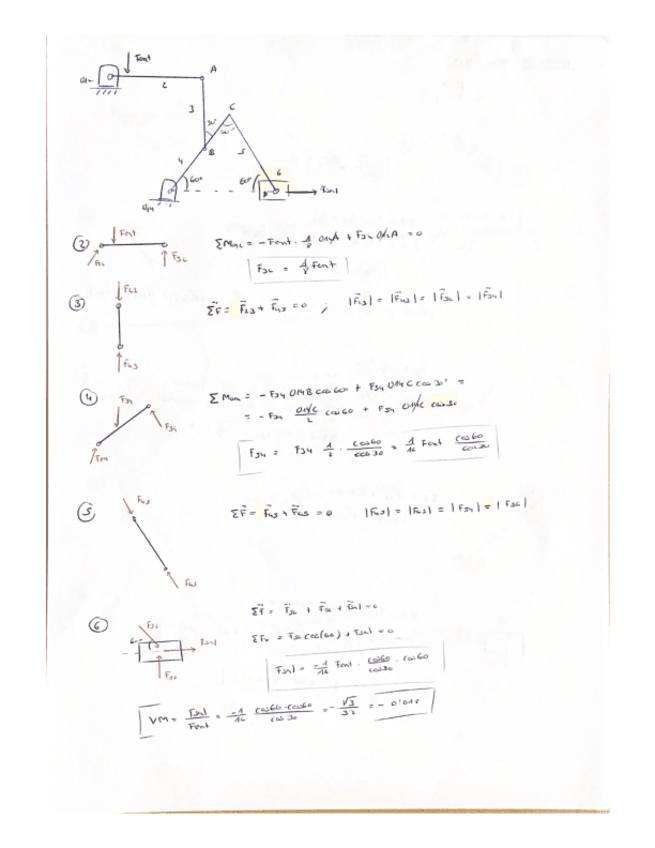 Fent
A
2
3
C
30°
B
4
5
60°
60°
6
Fsal
② Fent ΣM = - Fent · 1/8 O₁₂A + F32 O₁₂A = 0
F32 = 1/8 Fent
③ F23 ΣF⃗ = F⃗23 + F⃗43 = 0 ; |F⃗23| = |F⃗43| = |F⃗32| = |F⃗34|
F43
④ F34 ΣM = - F34 O14B cos60° + F54 O14C cos30° =
= - F34 O14C/2 cos60 + F54 O14C cos30
F54
F54 = F34 1/2 · cos60/cos30 = 1/16 Fent cos60/cos30
⑤ F45 ΣF⃗ = F⃗45 + F⃗65 = 0 |F45| = |F65| = |F54| = |F56|
F65
ΣF⃗ = F⃗56 + F⃗16 + F⃗sal = 0
⑥ F56
ΣFx = F56 cos(60) + Fsal = 0
Fsal
F16
Fsal = -1/16 Fent · cos60/cos30 · cos60
VM = Fsal/Fent = -1/16 cos60·cos60/cos30 = - √3/32 = - 0'018